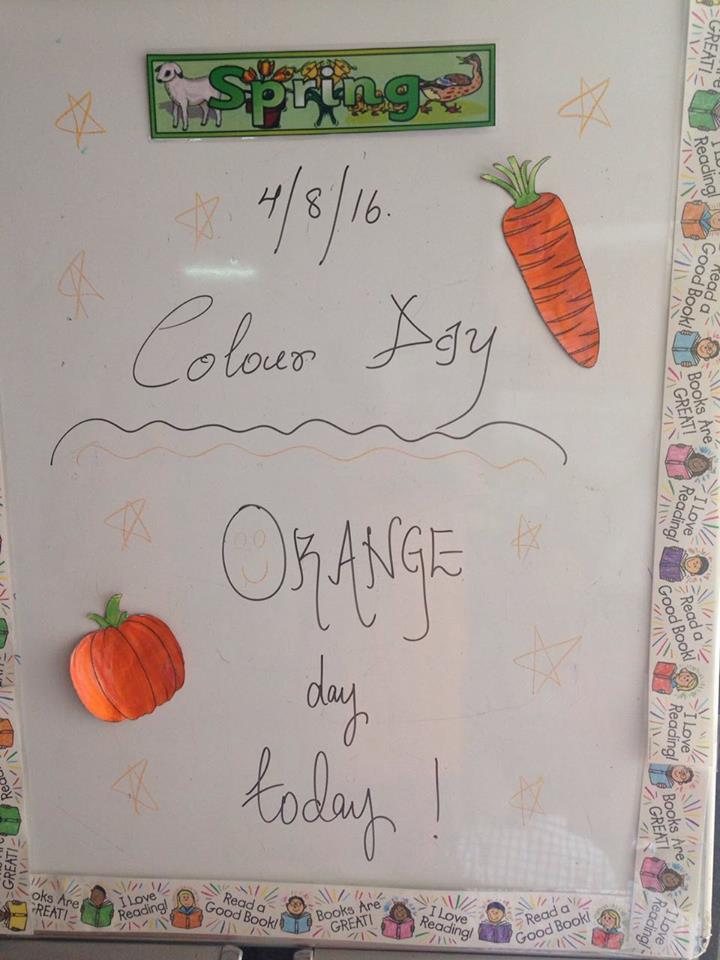 Spring
4/8/16.
Colour Day
ORANGE
day
today !
GREAT!
I Love Reading!
Read a Good Book!
Books Are GREAT!
I Love Reading!
Read a Good Book!
I Love Reading!
Books Are GREAT!
I Love Reading!
GREAT!
oks Are GREAT!
I Love Reading!
Read a Good Book!
Books Are GREAT!
I Love Reading!
Read a Good Book!